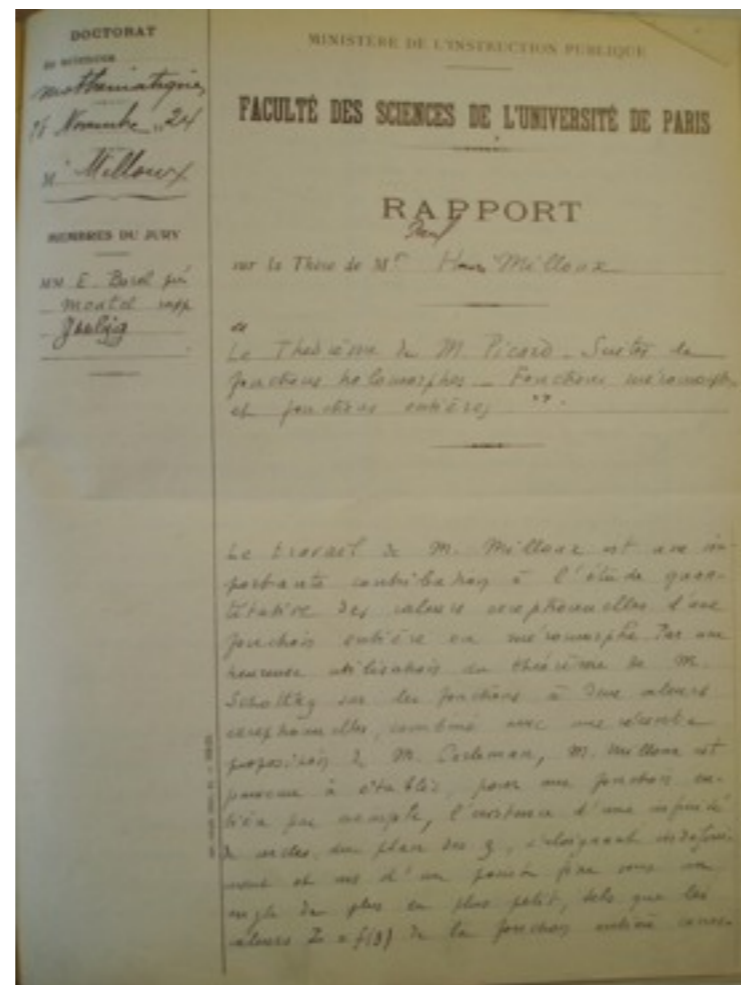 DOCTORAT
ès SCIENCES
mathématiques
Novembre 24
M. Milloux
MEMBRES DU JURY
MM E. Borel pré
Montel rapp
MINISTÈRE DE L'INSTRUCTION PUBLIQUE
FACULTÉ DES SCIENCES DE L'UNIVERSITÉ DE PARIS
RAPPORT
sur la Thèse de Mr Milloux
Le Théorème de M. Picard. Suites de
fonctions holomorphes. Fonctions méromorphes
et fonctions entières ".
Le travail de M. Milloux est une im-
portante contribution à l'étude quan-
titative des valeurs exceptionnelles d'une
fonction entière ou méromorphe. Par une
heureuse utilisation du théorème de M.
Schottky sur les fonctions à deux valeurs
exceptionnelles, combiné avec une récente
proposition de M. Carleman, M. Milloux est
parvenu à établir, pour une fonction en-
tière par exemple, l'existence d'une infinité
de cercles du plan des z, s'éloignant indéfini-
ment et vus d'un point fixe sous un
angle de plus en plus petit, tels que les
valeurs Z = f(z) de la fonction entière